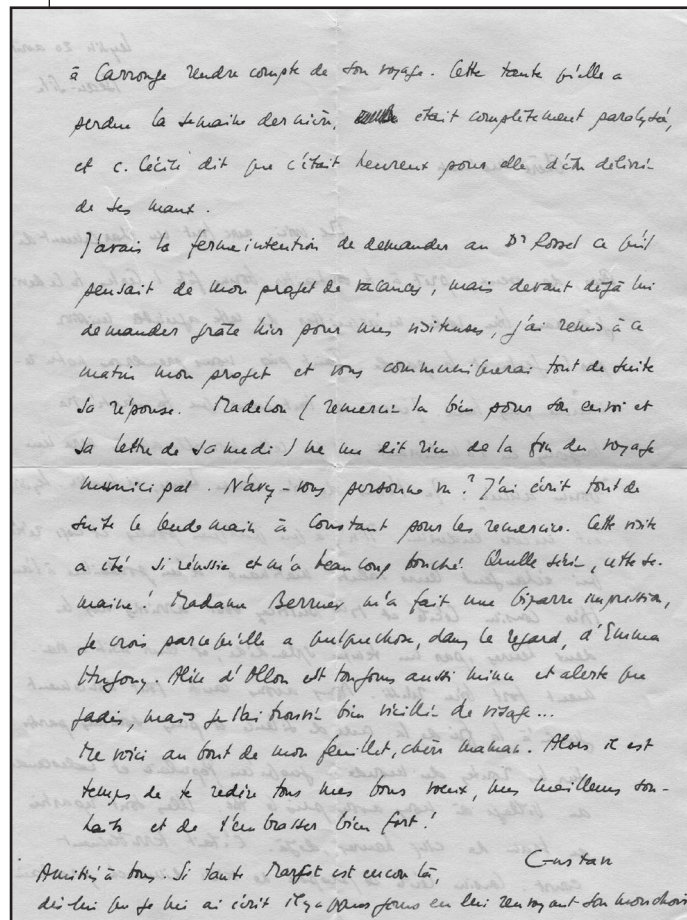 à Carrouge rendre compte de son voyage. Cette tante qu'elle a
perdue la semaine dernière, était complètement paralysée,
et c. Cécile dit que c'était heureux pour elle d'être délivrée
de ses maux.
J'avais la ferme intention de demander au Dr Rosset ce qu'il
pensait de mon projet de vacances, mais devant déjà lui
demander grâce hier pour mes visiteuses, j'ai remis à ce
matin mon projet et vous communiquerai tout de suite
sa réponse. Madelon (remerciez la bien pour son envoi et
sa lettre de samedi) ne me dit rien de la fin du voyage
municipal. N'avez-vous personne vu? J'ai écrit tout de
suite le lendemain à Constant pour les remercier. Cette visite
a été si réussie et m'a beaucoup touché. Quelle série, cette se-
maine! Madame Bernier m'a fait une bizarre impression,
je crois parce qu'elle a quelque chose, dans le regard, d'Emma
Hugony. Alice d'Ollon est toujours aussi mince et alerte que
jadis, mais je l'ai trouvée bien vieillie de visage...
Me voici au bout de mon feuillet, chère maman. Alors il est
temps de te redire tous mes bons voeux, mes meilleurs sou-
haits et de t'embrasser bien fort!
Gustave
Amitiés à tous. Si tante Margot est encore là,
dis-lui que je lui ai écrit il y a jours en lui renvoyant son mouchoir